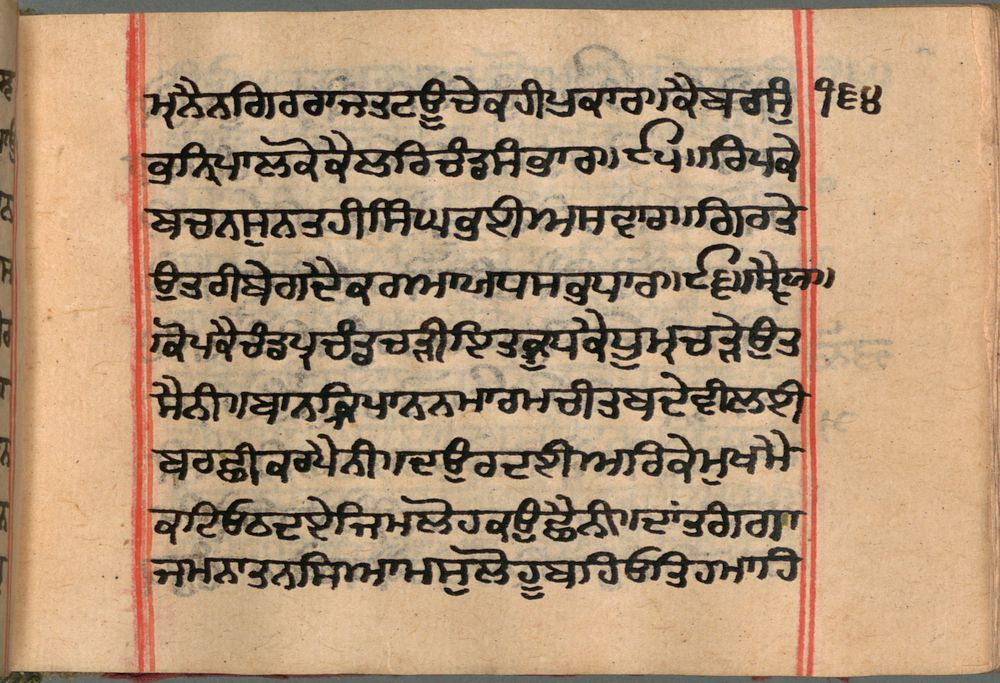 ਮ੍ਰਨੈਨਗਿਰਰਾਜਤਟਊਚੇਕਹੀਪ੍ਰਕਾਰ॥ਕੈਬਰਸੁੰ ੧੬੪
ਕੁਨਿਪਾਲੋਕੋਕੈਲਰਿਚੰਡਸਿੰਕਾਰ॥੯੫॥ਰਿਪਕੇ
ਬਚਨਸੁਨਤਹੀਸਿੰਘਕੁਈਅਸਵਾਰ॥ਗਿਰਤੇ
ਉਤਰੀਬੇਗਦੈਕਰਆਯਧਸਕੁਪਾਰ॥੯੬॥ਸ੍ਵੈਯਾ॥
ਕੋਪਕੈਚੰਡਪ੍ਰਚੰਡਚੜੀਇਤਕ੍ਰੂਧਕੈਧੂਮ੍ਰਚੜੇਉਤ
ਸੈਨੀ॥ਬਾਨਕ੍ਰਿਪਾਨਨਮਾਰਮਚੀਤਬਦੇਵੀਲਈ
ਬਰਛੀਕਰਪੈਨੀ॥ਦਉਰਦਈਅਰਿਕੇਮੁਖਮੈ
ਕਾਟਿਓਠਦਏਜਿਮਲੋਹਕਉਛੈਨੀ॥ਦਾਂਤਗਿਰਾ
ਜਮਨਾਤਨਸਿਆਮਸੁਲੋਹੂਬਹਿਓਤਿਹਮਾਹਿ